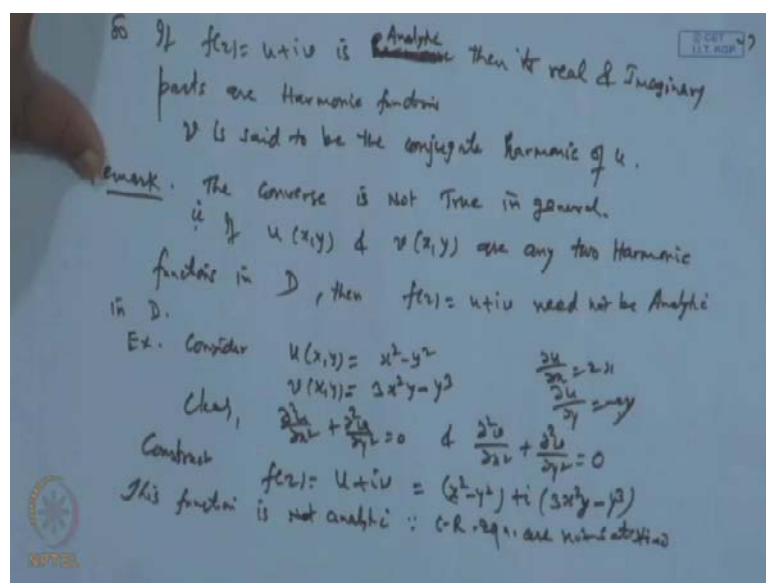 So If f(z) = u+iv is Analytic then its real & Imaginary
parts are Harmonic functions
v is said to be the conjugate Harmonic of u.
emark. The Converse is Not True in general.
ie If u(x,y) & v(x,y) are any two Harmonic
functions in D, then f(z) = u+iv need not be Analytic
in D.
Ex. Consider u(x,y) = x²-y² ∂u/∂x = 2x
v(x,y) = 3x²y-y³ ∂u/∂y = -2y
Clearly, ∂²u/∂x² + ∂²u/∂y² = 0 & ∂²v/∂x² + ∂²v/∂y² = 0
Construct f(z) = u+iv = (x²-y²) + i(3x²y-y³)
This function is not analytic ∵ C-R. Eqn. are not satisfied
© CET
I.I.T. KGP
NPTEL